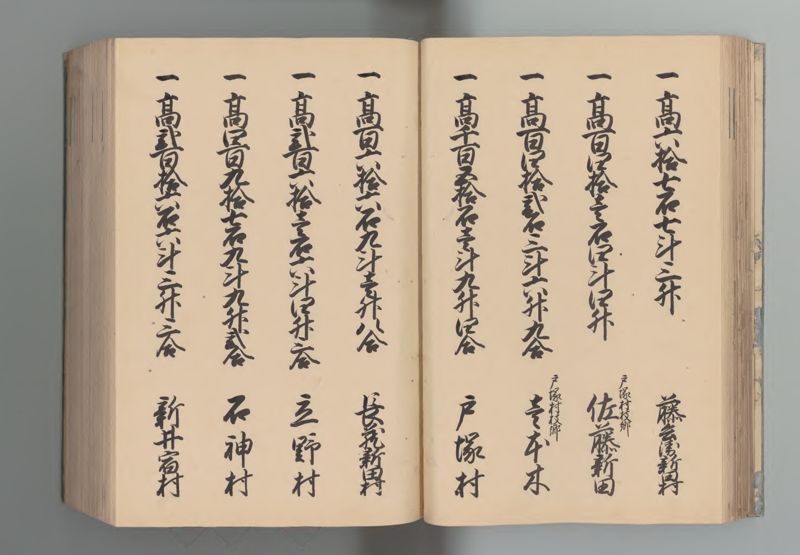 一 高六拾七石七斗三升 藤兵衛新田村
一 高百四拾壱石四斗四升 戸塚村枝郷 佐藤新田
一 高百四拾弐石三斗六升九合 戸塚村枝郷 壱本木
一 高千百五拾石壱斗九升四合 戸塚村
一 高百六拾六石九斗壱升八合 長蔵新田村
一 高弐百六拾壱石六斗四升三合 立野村
一 高四百九拾七石九斗九升弐合 石神村
一 高弐百拾六石六斗三升三合 新井宿村